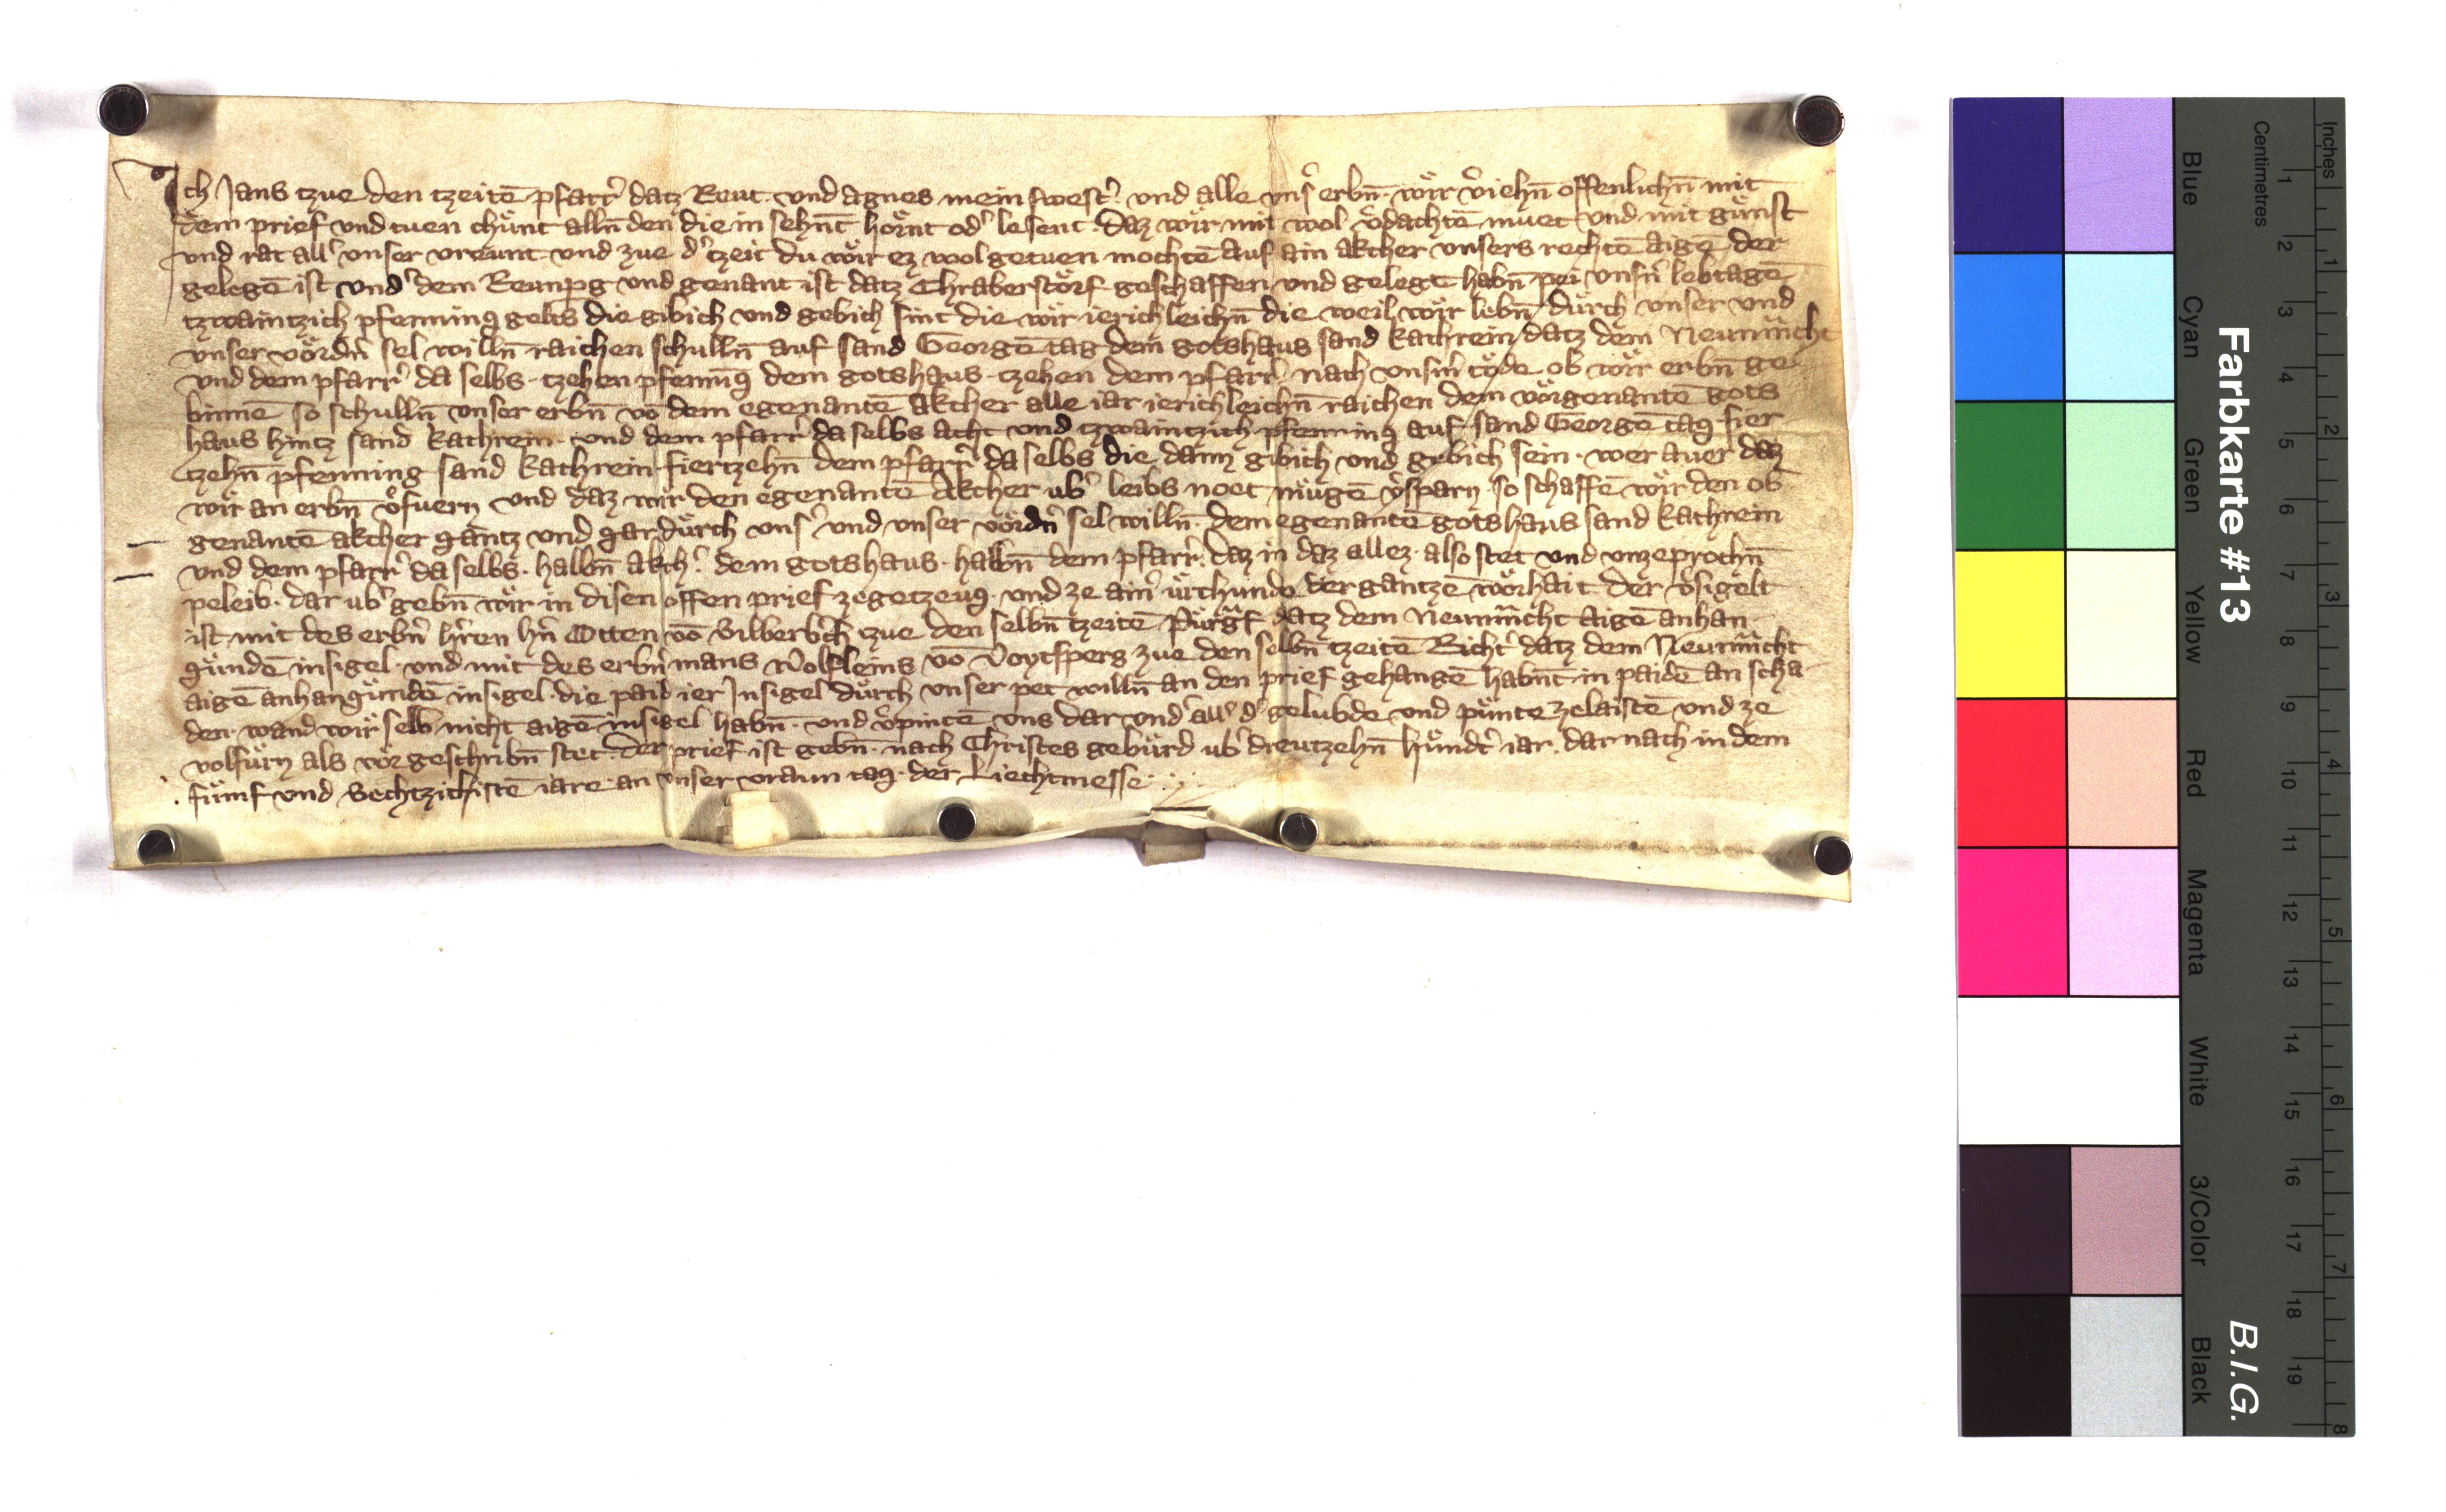 Ich Jans tzue den tzeitē pfarr̾ datz Reut · und agnes mein swest̾ · und alle uns̾ erbn̄ · wǒr v̾iehn̄ offenlichn̄ mit
dem prief und tuen chůnt alln̄ den die in sehn̄t hǒrnt od̾ lesent · daz wǒr mit wol v̾dachtē muet und mit gůnst
und rat all̾ unser vreunt und zue d̾ tzeit du wǒr ez wol getuen mochtē auf ain akcher unsers rechtē aigē der
gelegē ist und̾ dem Reunpg und genant ist datz Chraberstǒrf geschaffen und gelegt habn̄ pei unsn̾ lebtagē
tzwaintzich pfenning gelts die gibich und gebich sint die wǒr ierichleichn̄ die weil wǒr lebn̄ dǔrch unser und
unser vǒrdn̾ sel willn̄ raichen schulln̄ auf sand Georgē tag dem gotshaus sand kathrein datz dem Neumm̄cht
und dem pfarr̾ da selbs · tzehen pfenning dem gotshaus · tzehen dem pfarr̾ nach unsm̾ tǒde ob wǒr erbn̄ ge
binnē so schulln̄ unser erbn̄ vō dem egenantē akcher alle iar ierichleichn̄ raichen dem vǒrgenantē gots
haus hintz sand kathrein · und dem pfarr̾ da selbs acht und tzwaintzich pfenning auf sand Georgē tag fier
tzehn̄ pfenning sand kathrein fiertzehn̄ dem pfarr̾ da selbs die dann gibich und gebich sein · wer auer daz
wǒr an erbn̄ v̾fuern und daz wǒr den egenantē akcher ub̾ leibs noet mugē v̾sparn · so schaffē wǒr den ob
genantē akcher gantz und gar dǔrch uns̾ und unser vǒrdn̾ sel willn̄ · dem egenantē gotshaus sand kathrein
und dem pfarr̾ da selbs · halbn̄ akch̾ · dem gotshaus · halbn̄ dem pfarr̾ · daz in daz allez · also stet und unzeprochn̄
peleib · dar ub̾ gebn̄ wǒr in disen offen prief ze getzeug · und ze ain̾ ǔrchund der gantzē wǒrhait · der v̾sigelt
ist mit des erbn̾ hr̾ren hn̾ Otten vō Silberb̾ch tzue den selbn̄ tzeitē Pǔrgf̄ datz dem Neumm̄cht aigē anhan
gǔndē insigel · und mit des erbn̾ mans Wolfleins vō Voytsperg zue den selbn̄ tzeitē Richt̾ datz dem Neumm̄cht
aigē anhangǔndē insigel · die paid ier Insigel dǔrch unser pet willn̄ an den prief gehangē habn̄t in paidē an scha
den · wand wir selb nicht aigē insigel habn̄ · und v̾pintē uns dar und̾ all̾ d̾ gelubde und pǔnte ze laistē und ze
volfǔrn als vǒr geschribn̄ stet · der prief ist gebn̄ · nach Christes gebǔrd ub̾ dreutzehn̄ hǔndt̾ iar · dar nach in dem
fǔmf und Sechtzichistē iare · an unser vraun tag · der Liechtmesse
Farbkarte #13
B.I.G.
Inches
Centimetres
Blue
Cyan
Green
Yellow
Red
Magenta
White
3/Color
Black
1 2 3 4 5 6 7 8 9 10 11 12 13 14 15 16 17 18 19
1 2 3 4 5 6 7 8